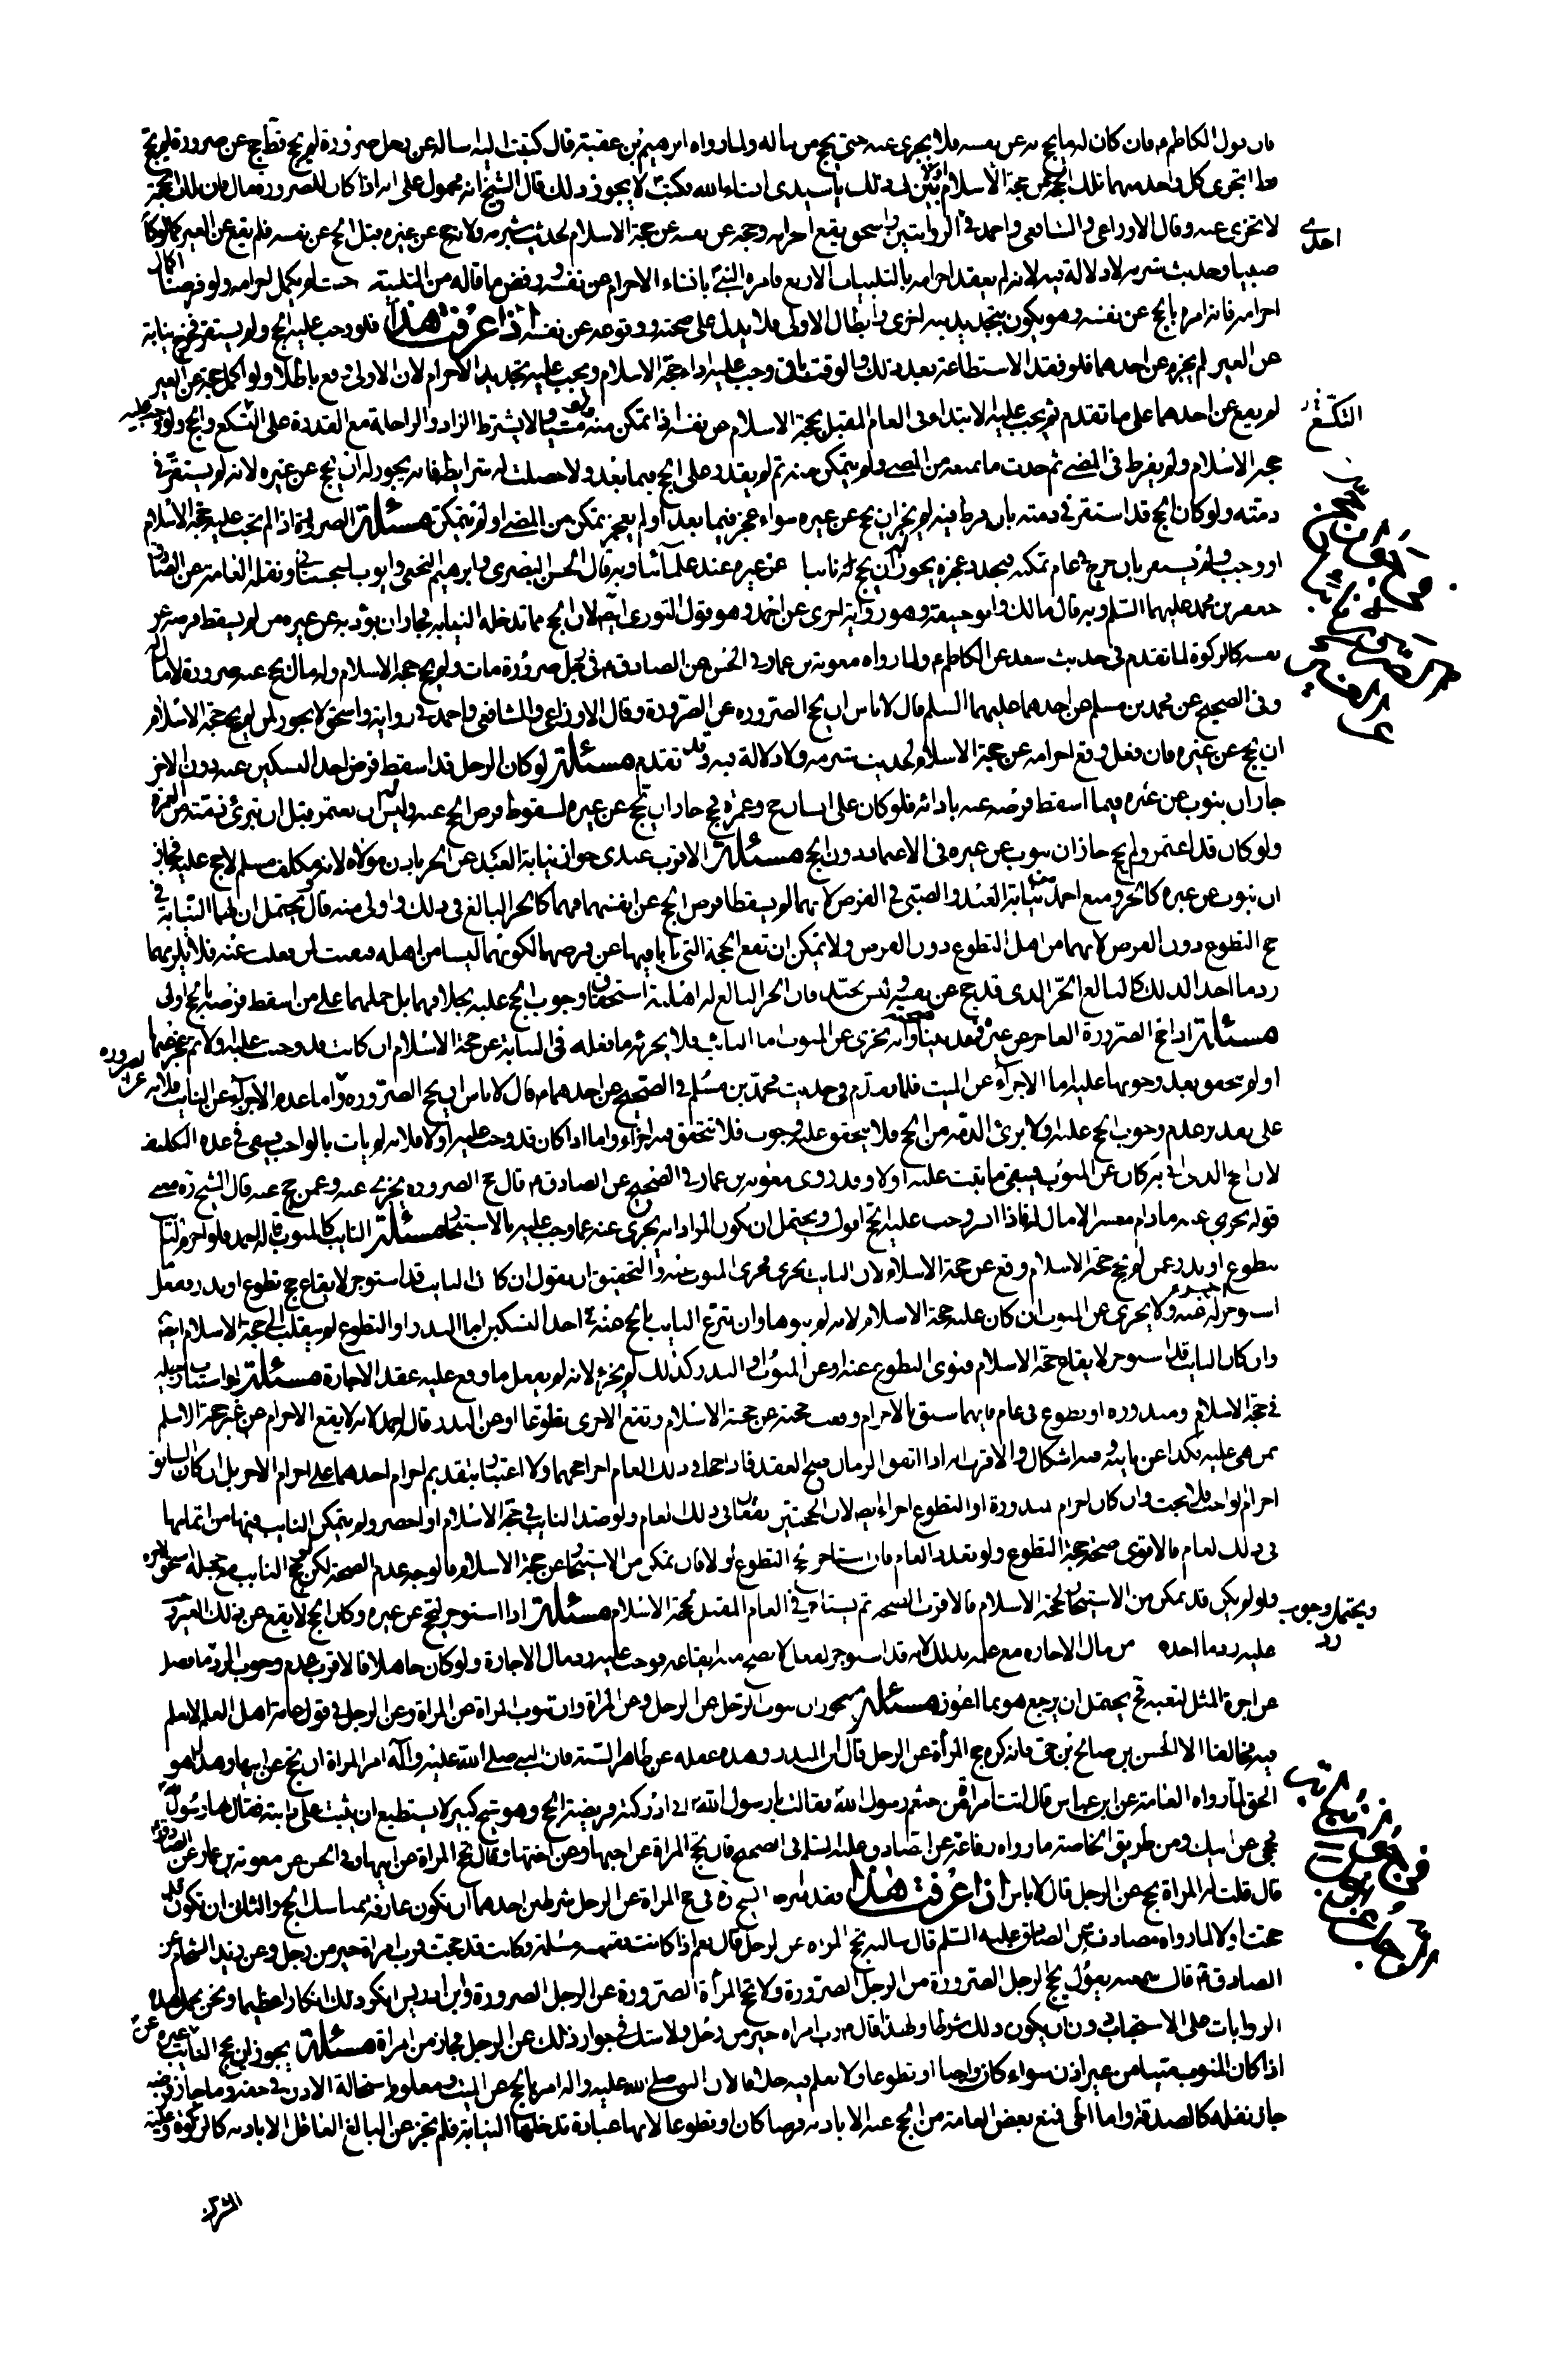 فان قول الكاظم م فان كان له ما يحج به عن نفسه فلا يجزى عنه حتى يحج من ماله ولما رواه ابرهيم بن عقبة قال كتبت اليه اساله عن رجل صرورة لم يحج قط حج عن صرورة لم يحج
قط ايجزى كل واحد منهما تلك الحجة عن حجة الاسلام او لا بين لى ذلك يا سيدى ان شاء الله فكتب لا يجوز ذلك قال الشيخ انه محمول على انه اذا كان للصرورة مال فان تلك الحجة
لا تجزى عنه وقال الاوزاعى والشافعى واحمد فى الروايتين واسحق يقع احرامه وحجه عن نفسه عن حجة الاسلام لحديث شبرمه ولانه حج عن غيره قبل الحج عن نفسه فلم يقع عن الغير كما لو كان
احدى
صبيا وحديث شبرمه لا دلالة فيه لانه لم يعقد احرامه بالتلبيات الاربع فامره النبى بانشاء الاحرام عن نفسه ورفض ما قاله من التلبية حيث لم يكمل احرامه ولو فرضنا اكمال
احرامه فانه امره بالحج عن نفسه وهو يكون بتجديد نية اخرى وابطال الاولى فلا يدل على صحته ووقوعه عن نفسه اذا عرفت هذا فلو وجب عليه الحج ولم يستقر فخرج بنيابة
عن الغير لم يجزه عن احدهما فلو فقد الاستطاعة بعد ذلك والوقت باق وجب عليه اداء حجة الاسلام ويجب عليه تجديد الاحرام لان الاولى وقع باطلا ولو اكمل حجة عن الغير
لم يقع عن احدهما على ما تقدم ثم يجب عليه الابتداء فى العام المقبل بحجة الاسلام عن نفسه اذا تمكن منه ولو مشيا ولا يشترط الزاد والراحلة مع القدرة على التسكع والحج ولو وجب عليه
التسكع
حجة الاسلام ولم يفرط فى المضى ثم حدث ما يمنعه من المضى ولم يتمكن منه ثم لم يقدر على الحج فيما بعد ولا حصلت له شرايطه فانه يجوز له ان يحج عن غيره لانه لم يستقر فى
ذمته ولو كان الحج قد استقر فى ذمته بان فرط فيه لم يجز ان يحج عن غيره سواء عجز فيما بعد او لم يعجز تمكن من المضى او لم يتمكن مسئلة الصرورة اذا لم تجب عليه حجة الاسلام
او وجب ولم تستقر بان خرج فى عام تمكنه فتجدد عجزه يجوز ان يحج نائبا عن غيره عند علمائنا وبه قال الحسن البصرى وابرهيم النخعى وايوب السجستانى ونقله العامة عن الصادق
جعفر بن محمد عليهما السلم وبه قال مالك وابو حنيفة وهو رواية اخرى عن احمد وهو قول الثورى ايضا لان الحج مما تدخله النيابة فجاز ان يؤديه عن غيره من لم يسقط فرضه عن
نفسه كالزكوة لما تقدم فى حديث سعد عن الكاظم م ولما رواه معوية بن عمار فى الحسن عن الصادق م فى رجل صرورة مات ولم يحج حجة الاسلام وله مال يحج عنه صرورة لا مال له
وفى الصحيح عن محمد بن مسلم عن احدهما عليهما السلم قال لا باس ان يحج الصرورة عن الصرورة وقال الاوزاعى والشافعى واحمد فى رواية واسحق لا يجوز لمن لم يحج حجة الاسلام
ان يحج عن غيره فان فعل وقع احرامه عن حجة الاسلام لحديث شبرمه ولا دلالة فيه وقد تقدم مسئلة لو كان الرجل قد اسقط فرض احد النسكين عنه دون الاخر
جاز ان ينوب عن غيره فيما اسقط فرضه عنه بادائه فلو كان على انسان حج وعمرة فحج جاز ان يحج عن غيره لسقوط فرض الحج عنه وليس له ان يعتمر قبل ان تبرئ ذمته من العمرة
ولو كان قد اعتمر ولم يحج جاز ان ينوب عن غيره فى الاعتمار دون الحج مسئلة الاقرب عندى جواز نيابة العبد عن الحر باذن مولاه لانه مكلف مسلم لا حج عليه فجاز
ان ينوب عن غيره كالحر ومنع احمد من نيابة العبد والصبى فى الفرض لانهما لم يسقطا فرض الحج عن انفسهما فهما كالحر البالغ فى ذلك واولى منه قال ويحتمل ان لهما النيابة فى
حج التطوع دون الفرض لانهما من اهل التطوع دون الفرض ولا يمكن ان تقع الحجة التى نابا فيها عن فرضهما لكونهما ليسا من اهله فبقيت لمن فعلت عنه فلا يلزمهما
رد ما اخذا لذلك كالبالغ الحر الذى قد حج عن نفسه وليس بجيد فان الحر البالغ له اهلية استحقاق وجوب الحج عليه بخلافهما بل حملهما على من اسقط فرضه بالحج اولى
مسئلة اذا حج الصرورة العاجز عن غيره فقد بينا انه يجزى عن المنوب اما النائب فلا يجزئه ما فعله فى النيابة عن حجة الاسلام ان كانت قد وجبت عليه اولا ثم عجز عنها
او لم تتحقق بعد وجوبها عليه اما الاجزاء عن الميت فلما تقدم فى حديث محمد بن مسلم فى الصحيح عن احدهما م قال لا باس ان يحج الصرورة عن الصرورة واما عدم الاجزاء عن النايب فلانه
على تقدير عدم وجوب الحج عليه اولا برئ الذمة من الحج فلا يتحقق عليه وجوب فلا تتحقق فيه اجزاء واما اذا كان قد وجب عليه اولا فلانه لم يات بالواجب فبقى فى عهدة التكليف
لان الحج الذى اتى به كان عن المنوب فبقى ما يثبت عليه اولا وقد روى معوية بن عمار فى الصحيح عن الصادق م قال حج الصرورة يجزى عنه وعمن حج عنه قال الشيخ ره معنى
قوله يجزى عنه ما دام معسرا لا مال له فاذا ايسر وجب عليه الحج اقول ويحتمل ان يكون المراد انه يجزى عنه عما وجب عليه بالاستيجار مسئلة النايب كالمنوب قاله احمد فلو احرم النايب
بتطوع او نذر عمن لم يحج حجة الاسلام وقع عن حجة الاسلام لان النايب يجرى مجرى المنوب عنه والتحقيق ان نقول ان كان النايب قد استوجر لايقاع حج تطوع او نذر ففعل
استوجر له صح ولا يجزى عن المنوب ان كان عليه حجة الاسلام لانه لم ينوها وان تبرع النايب بالحج عنه فى احد النسكين اما النذر او التطوع لم ينقلب الى حجة الاسلام ايضا
وان كان النايب قد استوجر لايقاع حجة الاسلام فنوى التطوع عنه او عن المنوب او النذر كذلك لم يجزه لانه لم يفعل ما وقع عليه عقد الاجارة مسئلة لو استناب رجلين
فى حجة الاسلام ومنذوره او تطوع فى عام فايهما سبق بالاحرام وقعت حجته عن حجة الاسلام وتقع الاخرى تطوعا او عن النذر قال احمد لانه لا يقع الاحرام عن غير حجة الاسلم
ممن هى عليه فكذا عن نايبه وفيه اشكال والاقرب انه اذا اتفق الزمان صح العقد فان احرما فى ذلك العام اجزا عنهما ولا اعتبار بتقديم احرام احدهما على احرام الاخر بل ان كان السابق
احرام الواجب فلا بحث وان كان احرام المنذورة او التطوع اجزاه ايضا لان الحجتين تقعان فى ذلك العام ولو صد النايب فى حجة الاسلام او احصر ولم يتمكن النايب فيها من اتمامها
فى ذلك العام فالاقوى صحة حجة التطوع ولو تعدد العام فان استاجر لحج التطوع اولا فان تمكن من الاستيجار عن حجة الاسلام فالوجه عدم الصحة لكن لو حج النايب مع جهله استحق الاجرة
ولو لم يكن قد تمكن من الاستيجار لحجة الاسلام فالاقرب الصحة ثم يستاجر فى العام المقبل لحجة الاسلام مسئلة اذا استوجر ليحج عن غيره وكان الحج لا يقع عن ذلك الغير وجب
ويحتمل وجوب
رد
عليه رد ما اخذه من مال الاجاره مع علمه بذلك لانه قد استوجر لفعل لا يصح منه ايقاعه فوجب عليه رد مال الاجارة ولو كان جاهلا فالاقرب عدم وجوب الرد ما فضل
عن اجرة المثل لتعبه فح يحتمل ان يرجع هو بما اعوز مسئلة يجوز ان ينوب الرجل عن الرجل وعن المراة وان تنوب المراة عن المراة وعن الرجل فى قول عامة اهل العلم لا نعلم
فيه مخالفا الا الحسن بن صالح بن حى فانه كره حج المرأة عن الرجل قال ابن المنذر وهذه غفلة عن ظاهر السنة فان النبى صلى الله عليه وآله امر المراة ان تحج عن ابيها وهذا هو
الحق لما رواه العامة عن ابن عباس قال اتت امراة من خثعم رسول الله فقالت يا رسول الله ان ابى ادركته فريضة الحج وهو شيخ كبير لا يستطيع ان يثبت على دابته فقال لها رسول الله
فحجى عن ابيك ومن طريق الخاصة ما رواه رفاعة عن الصادق عليه السلم فى الصحيح قال تحج المراة عن اخيها وعن اختها وقال تحج المراة عن ابيها وفى الحسن عن معوية بن عمار عن الصادق م
قال قلت له المراة تحج عن الرجل قال لا باس اذا عرفت هذا فقد شرط الشيخ ره فى حج المراة عن الرجل شرطين احدهما ان تكون عارفة بمناسك الحج والثانى ان تكون قد
حجت اولا لما رواه مصادف عن الصادق عليه السلم قال سالته تحج المراه عن الرجل قال نعم اذا كانت فقيهة مسلمة وكانت قد حجت فرب امراة خير من رجل وعن زيد الشحام عن
الصادق م قال سمعته يقول يحج الرجل الصرورة عن الرجل الصرورة ولا تحج المرأة الصرورة عن الرجل الصرورة وابن ادريس انكر ذلك انكارا عظيما ونحن نحمل هذه
الروايات على الاستحباب دون ان يكون ذلك شرطا ولهذا قال م رب امراه خير من رجل ولا شك فى جواز ذلك عن الرجل فجاز من امراة مسئلة يجوز ان يحج النايب عن غيره
اذا كان المنوب ميتا من غير اذن سواء كان واجبا او تطوعا ولا نعلم فيه خلافا لان النبى صلى الله عليه واله امر بالحج عن الميت ومعلوم استحالة الاذن فى حقه وما جاز فرضه
جاز نفله كالصدقة واما الحى فمنع بعض العامة من الحج عنه الا باذنه فرضا كان او تطوعا لانها عبادة تدخلها النيابة فلم تجز عن البالغ العاقل الا باذنه كالزكوة وعليه